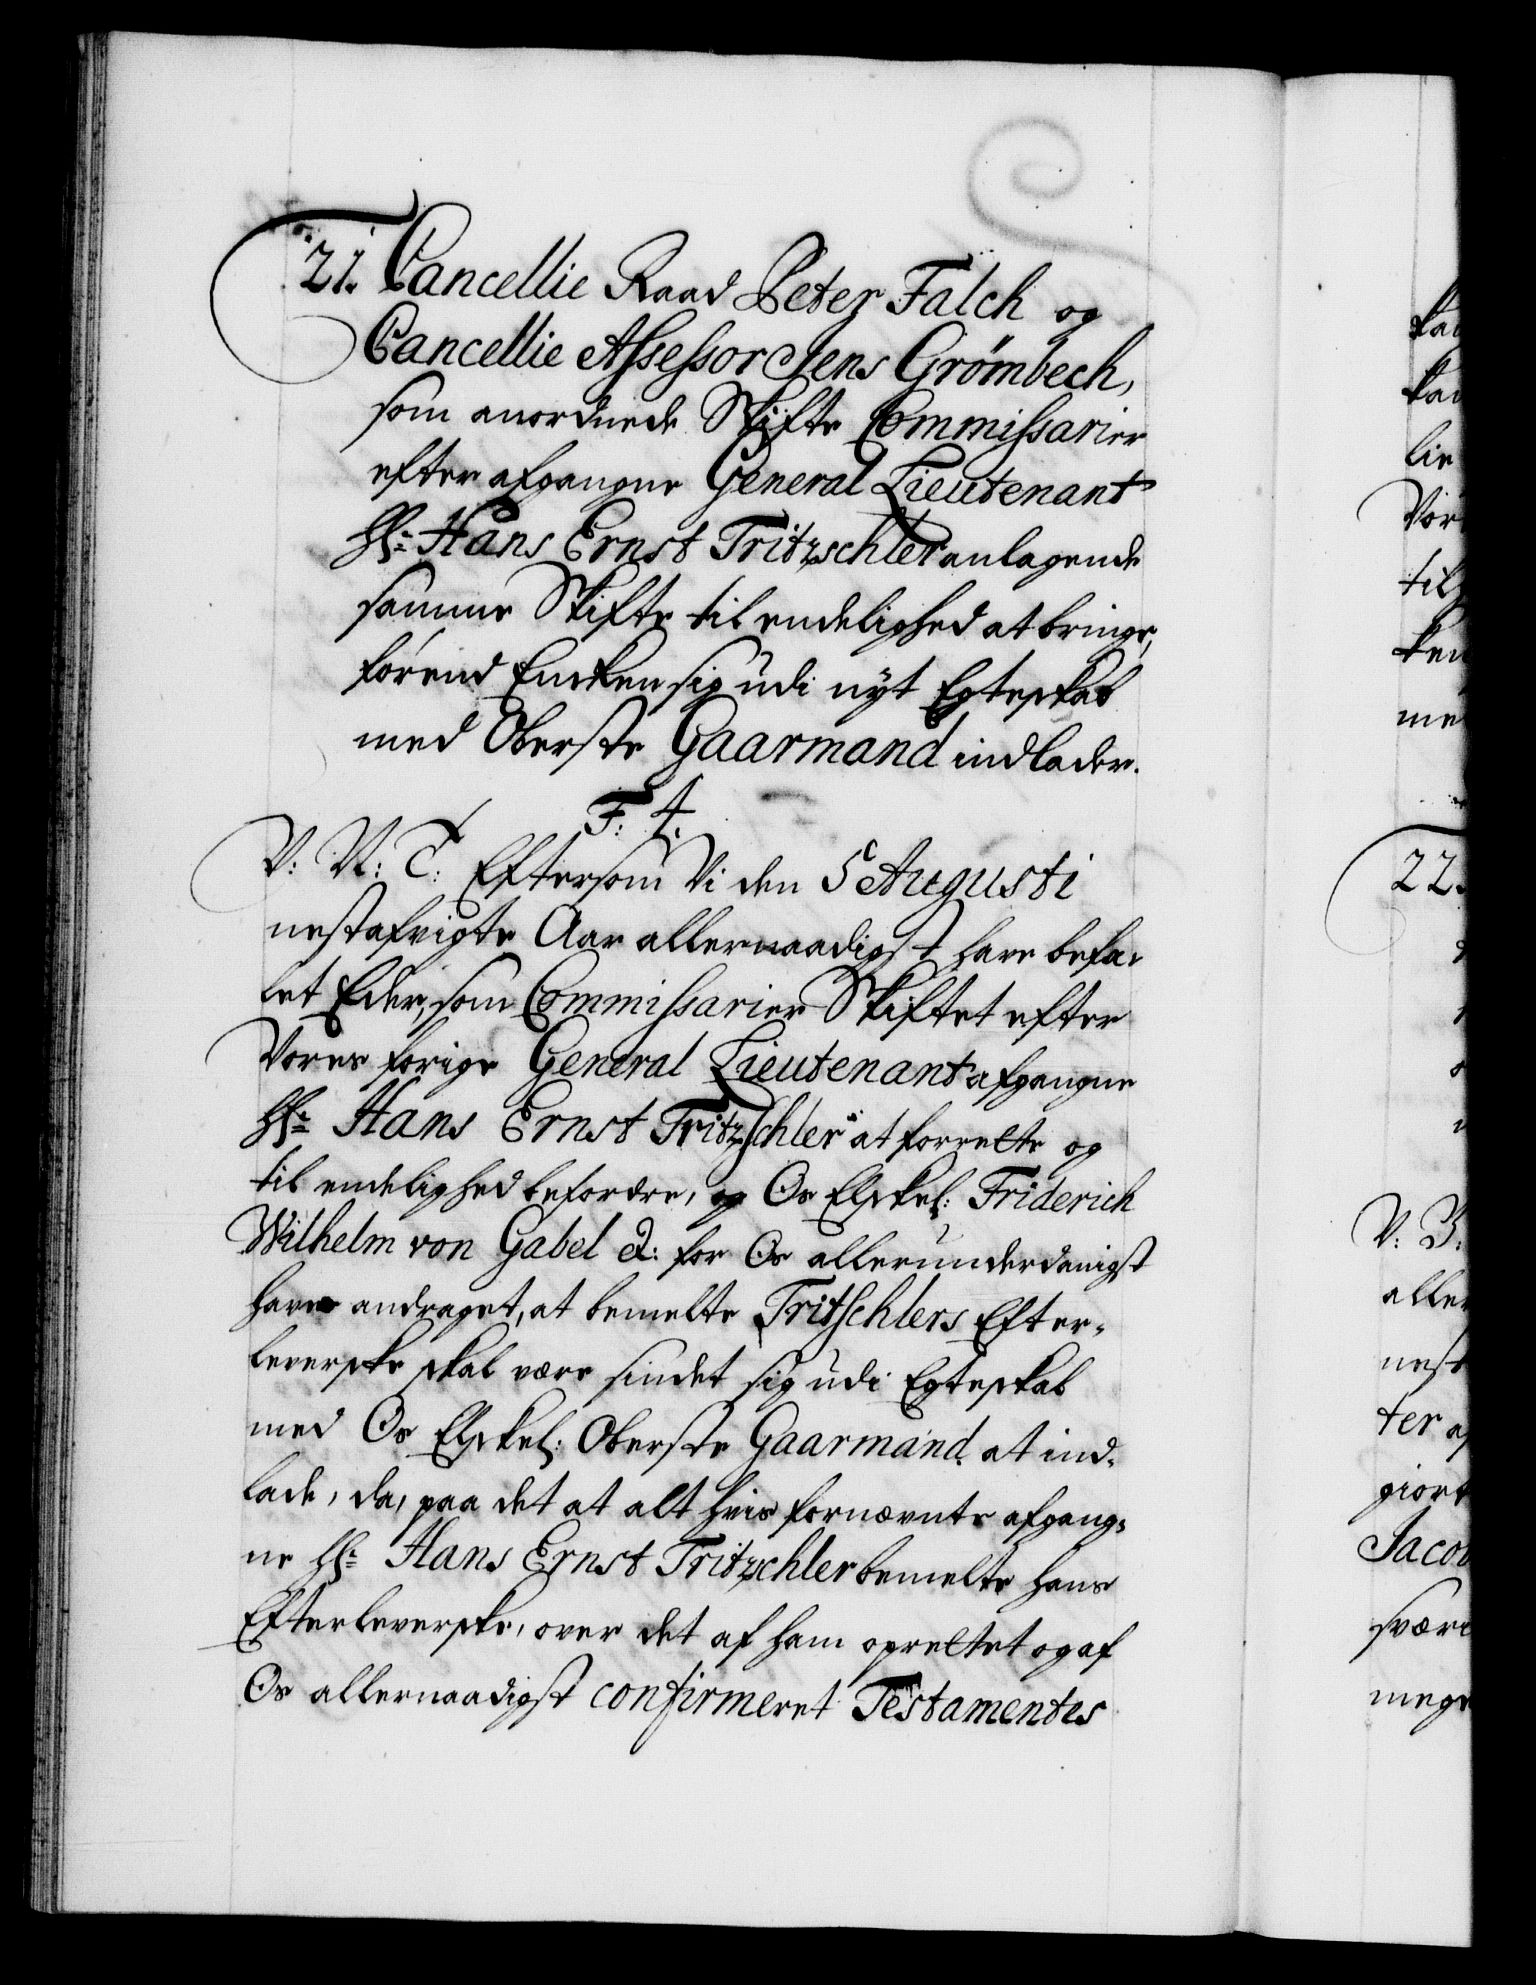 21. Cancellie Raad Peter Falch og
Cancellie Assessor Jens Grømbech,
som anordnede Skifte Commissarier
efter afgangne General Lieutenant
Hr: Hans Ernst Tritzschler anlagende
samme Skifte til endelighed at bringe,
førend Encken sig udi nyt Egteskab
med Oberste Gaarmand indlader.
F: 4.
V: V: T: Eftersom Vi den 5 Augusti
nestafvigte Aar allernaadigst have befa-
let Eder, som Commissarier Skiftet efter
Vores forige General Lieutenant afgangne
Hr: Hans Ernst Tritzschler at forrette og
til endelighed befordre, og Os Elskel: Friderich
Wilhelm von Gabel &: for Os allerunderdanigst
have andraget, at bemelte Tritschlers Efter-
leverske skal være sindet sig udi Egteskab
med Os Elskel: Oberste Gaarmand at ind-
lade, da, paa det at alt hvis fornævnte afgang-
ne Hr: Hans Ernst Tritzschler bemelte hans
Efterleverske, over det af ham oprettet og af
Os allernaadigst confirmeret Testamentes
22.
V: B:
aller
nest
ter af
giort
Jacob
svære
mege